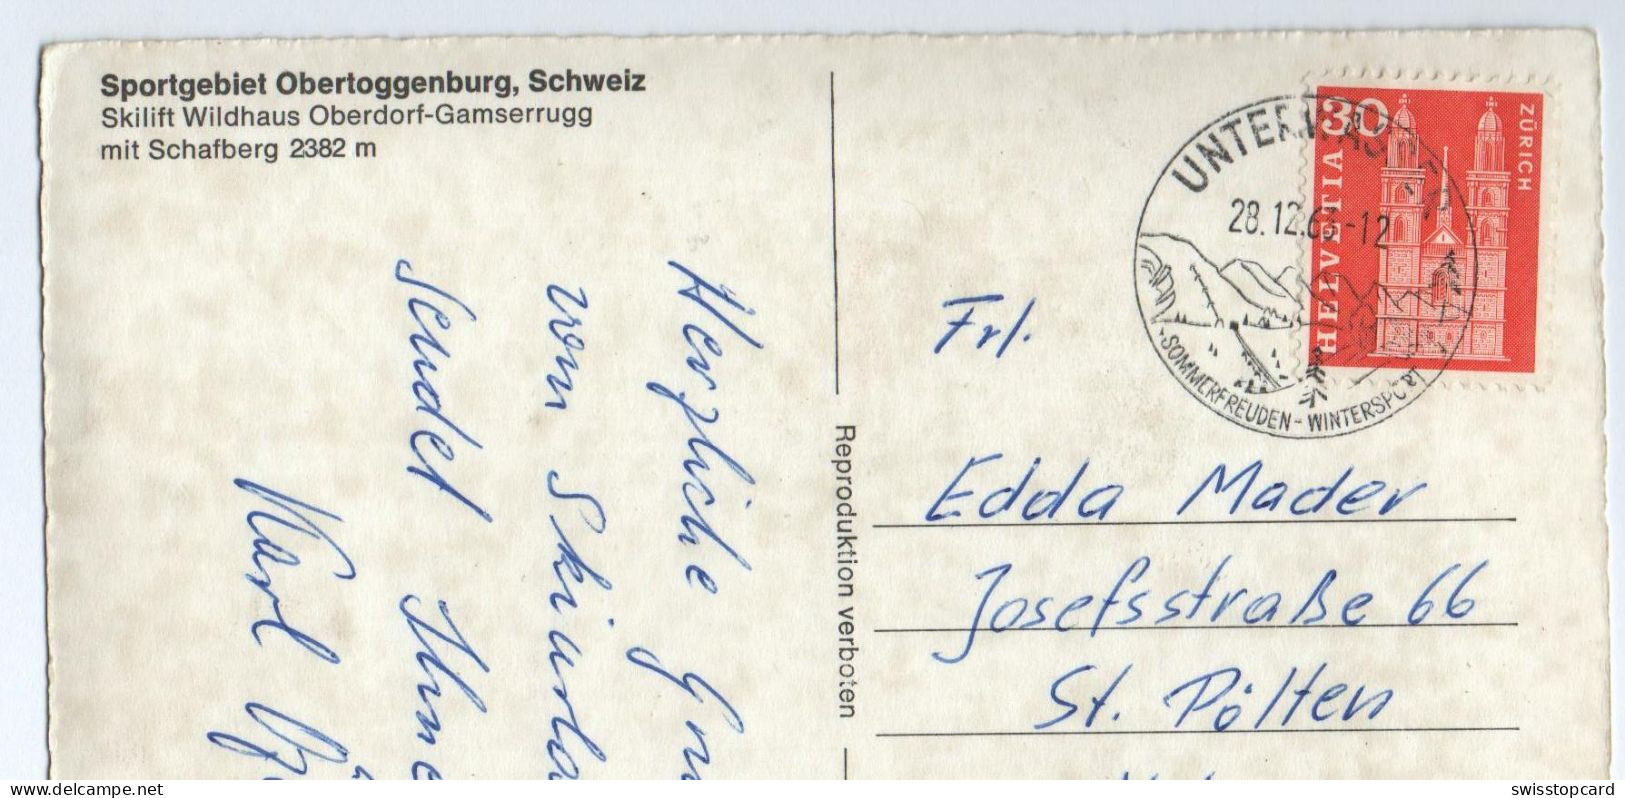 Sportgebiet Obertoggenburg, Schweiz
Skilift Wildhaus Oberdorf-Gamserrugg
mit Schafberg 2382 m
Herzliche
von
sendet
Karl
Reproduktion verboten
UNTERWASSER
28.12.63-12
SOMMERFREUDEN - WINTERSPORT
30
ZÜRICH
HELVETIA
Frl.
Edda Mader
Josefsstraße 66
St. Pölten
delcampe.net
swisstopcard